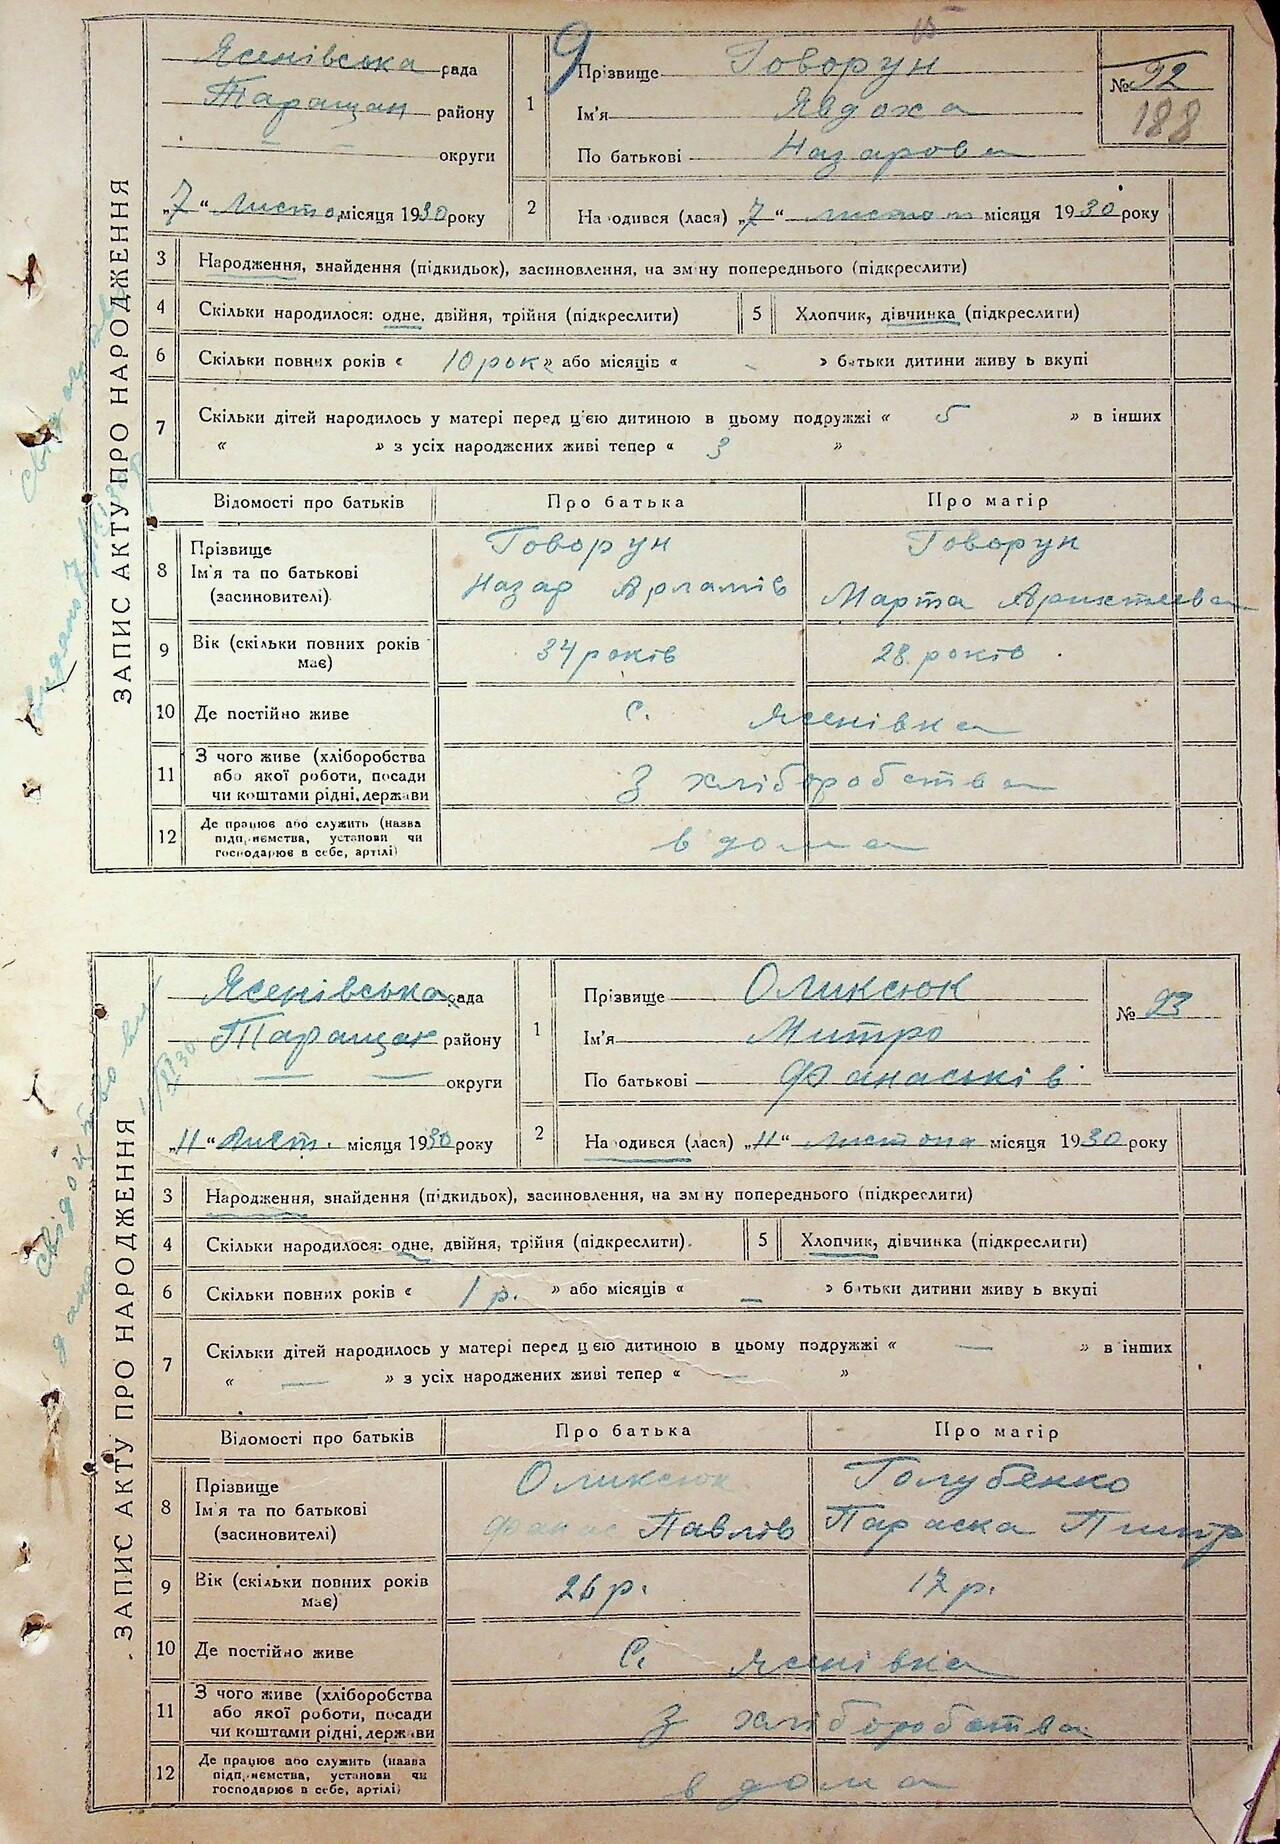 ЗАПИС АКТУ ПРО НАРОДЖЕННЯ
Ясенівська рада
Таращан району
округи
„7“ листо місяця 1930 року
1
Прізвище Говорун
Ім'я Явдоха
По батькові Назарова
№ 92
188
2
Народився (лася) „7“ листоп місяця 1930 року
3 Народження, знайдення (підкидьок), засиновлення, на зміну попереднього (підкреслити)
4 Скільки народилося: одне, двійня, трійня (підкреслити) 5 Хлопчик, дівчинка (підкреслити)
6 Скільки повних років « 10 рок » або місяців « - » батьки дитини живуть вкупі
7 Скільки дітей народилось у матері перед ц'єю дитиною в цьому подружжі « 5 » в інших
« » з усіх народжених живі тепер « 3 »
Відомості про батьків Про батька Про матір
8 Прізвище Говорун Говорун
Ім'я та по батькові Назар Марта
(засиновителі)
9 Вік (скільки повних років має) 34 років 28 років
10 Де постійно живе с. Ясенівка
11 З чого живе (хліборобства
або якої роботи, посади
чи коштами рідні, держави
З хліборобства
12 Де працює або служить (назва
підприємства, установи чи
господарює в себе, артілі)
в дома
ЗАПИС АКТУ ПРО НАРОДЖЕННЯ
Ясенівська рада
Таращан району
округи
„11“ Лист. місяця 1930 року
1
Прізвище Оликсюк
Ім'я Митро
По батькові Фанаськів
№ 93
2
Народився (лася) „11“ листопа місяця 1930 року
3 Народження, знайдення (підкидьок), засиновлення, на зміну попереднього (підкреслити)
4 Скільки народилося: одне, двійня, трійня (підкреслити). 5 Хлопчик, дівчинка (підкреслити)
6 Скільки повних років « 1 р. » або місяців « — » батьки дитини живуть вкупі
7 Скільки дітей народилось у матері перед цією дитиною в цьому подружжі « — » в інших
« — » з усіх народжених живі тепер « — »
Відомості про батьків Про батька Про матір
8 Прізвище Оликсюк Голубенко
Ім'я та по батькові Фанас Павлів Параска
(засиновителі)
9 Вік (скільки повних років має) 26 р. 17 р.
10 Де постійно живе С. Ясенівка
11 З чого живе (хліборобства
або якої роботи, посади
чи коштами рідні, держави
З хліборобства
12 Де працює або служить (назва
підприємства, установи чи
господарює в себе, артілі)
в дома